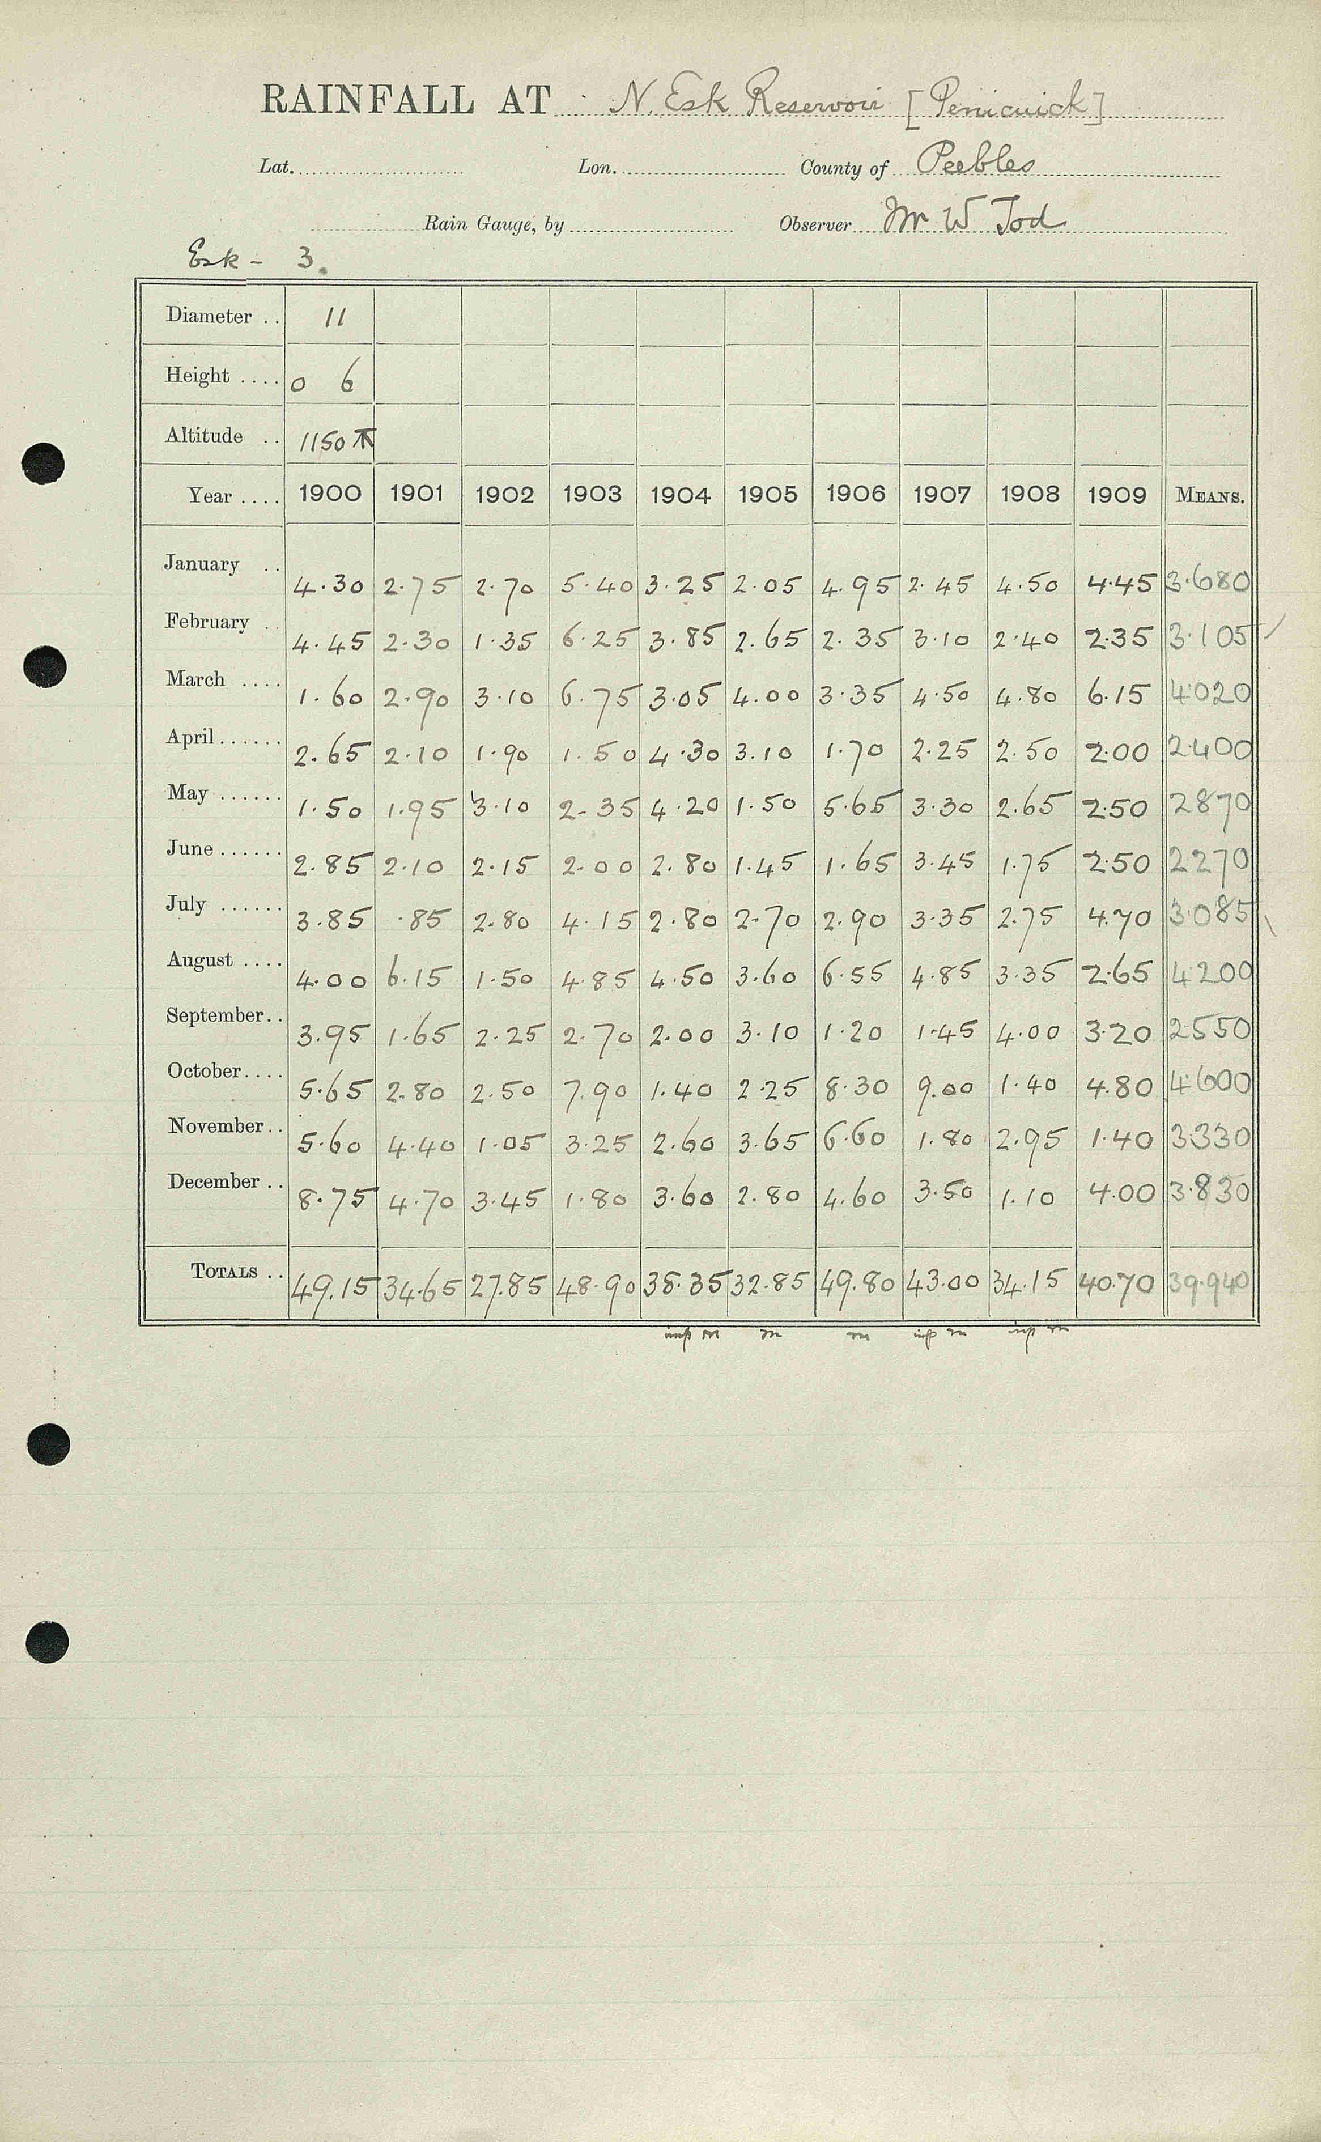 RAINFALL AT N. Esk Reservoir [Penicuick]
Lat. Lon. County of Peebles
Rain Gauge, by Observer Mr W Tod
Esk - 3.
Diameter .. 11
Height .... 0 6
Altitude .. 1150
Year .... 1900 1901 1902 1903 1904 1905 1906 1907 1908 1909 MEANS.
January .. 4.30 2.75 2.70 5.40 3.25 2.05 4.95 2.45 4.50 4.45 3.680
February .. 4.45 2.30 1.35 6.25 3.85 2.65 2.35 3.10 2.40 2.35 3.105
March .... 1.60 2.90 3.10 6.75 3.05 4.00 3.35 4.50 4.80 6.15 4.020
April...... 2.65 2.10 1.90 1.50 4.30 3.10 1.70 2.25 2.50 2.00 2.400
May ...... 1.50 1.95 3.10 2.35 4.20 1.50 5.65 3.30 2.65 2.50 2870
June...... 2.85 2.10 2.15 2.00 2.80 1.45 1.65 3.45 1.75 2.50 2270
July ...... 3.85 .85 2.80 4.15 2.80 2.70 2.90 3.35 2.75 4.70 3.085
August .... 4.00 6.15 1.50 4.85 4.50 3.60 6.55 4.85 3.35 2.65 4.200
September.. 3.95 1.65 2.25 2.70 2.00 3.10 1.20 1.45 4.00 3.20 2.550
October.... 5.65 2.80 2.50 7.90 1.40 2.25 8.30 9.00 1.40 4.80 4.600
November.. 5.60 4.40 1.05 3.25 2.60 3.65 6.60 1.80 2.95 1.40 3.330
December .. 8.75 4.70 3.45 1.80 3.60 2.80 4.60 3.50 1.10 4.00 3.830
TOTALS .. 49.15 34.65 27.85 48.90 38.35 32.85 49.80 43.00 34.15 40.70 39.940